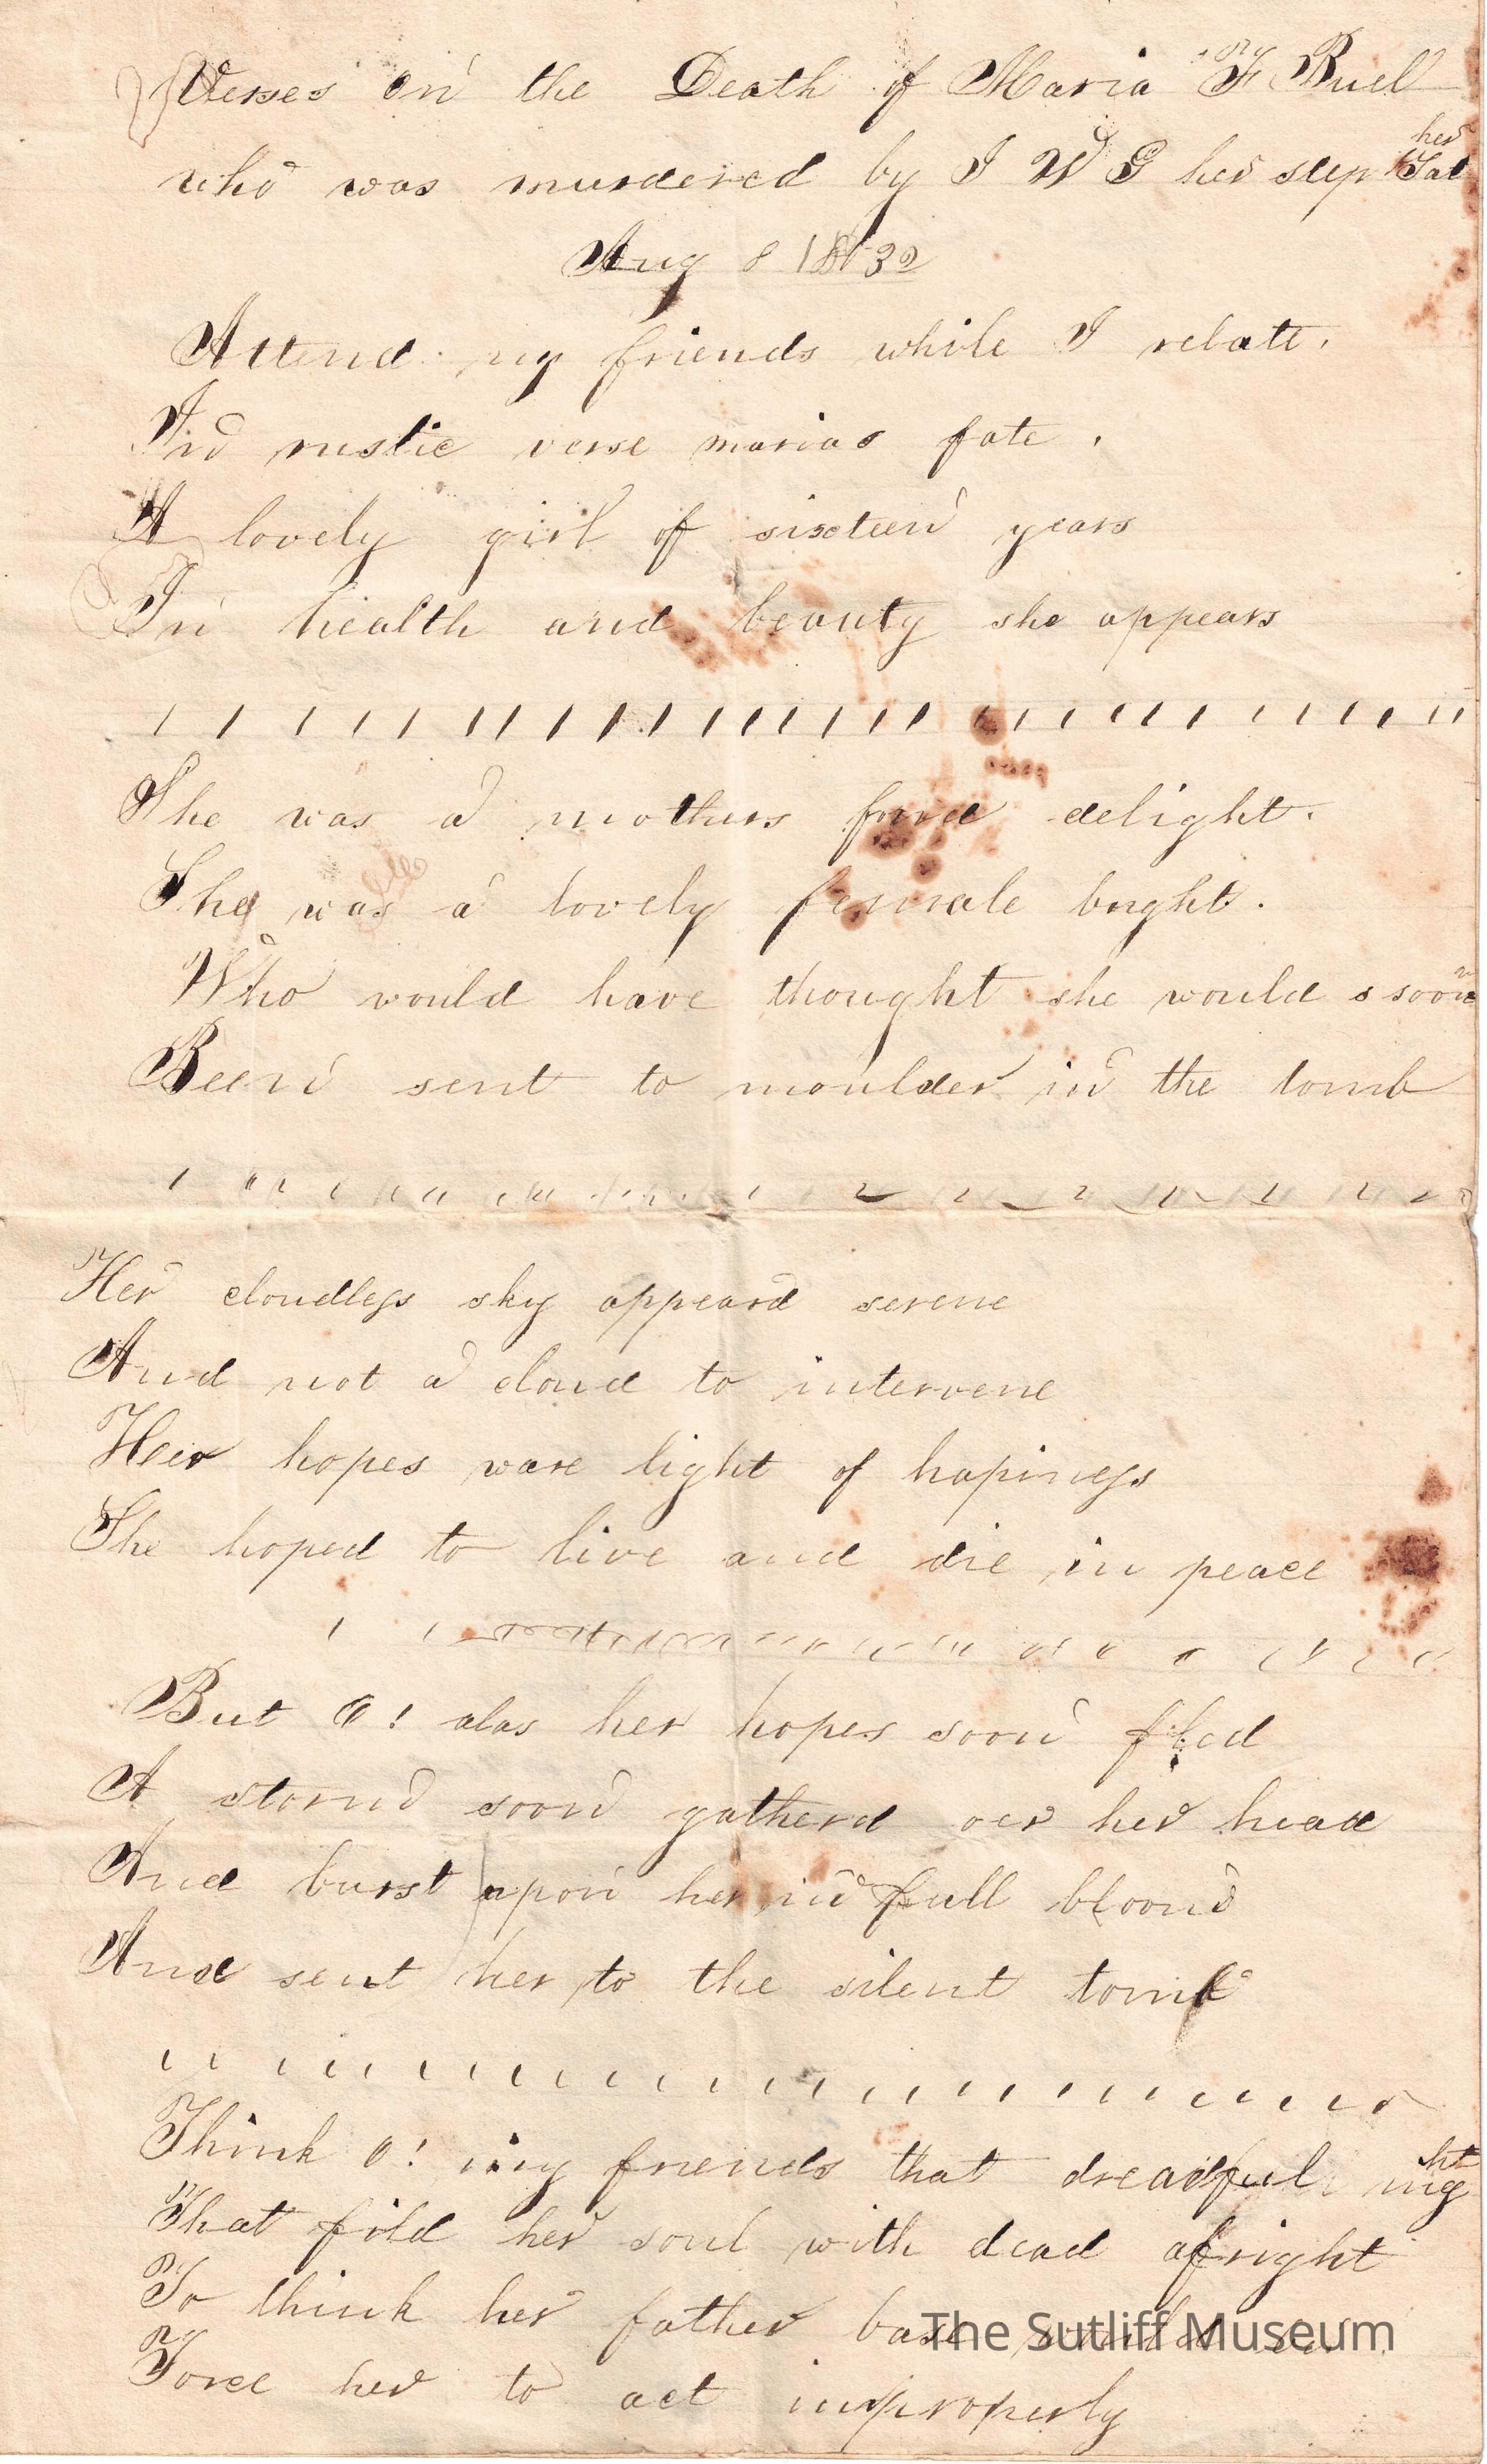 Verses on the Death of Maria F Buel
who was murdered by I W G her step Father
Aug 8 1832
Attend my friends while I relate.
In rustic verse marias fate.
A lovely girl of sixteen years
In health and beauty she appears
She was a mothers fond delight.
She was a lovely female bright.
Who would have thought she would s soon
Been sent to moulder in the tomb
Her cloudless sky appeard serene
And not a cloud to intervene
Heer hopes ware light of hapiness
She hoped to live and die in peace
But O! alas her hopes soon fled
A storm soon gatherd oer her head
And burst upon her in full bloom
And sent her to the silent tomb
Think O! my friends that dreadful night
That fild her soul with dead afright
To think her father base
Force her to act improperly
The Sutliff Museum